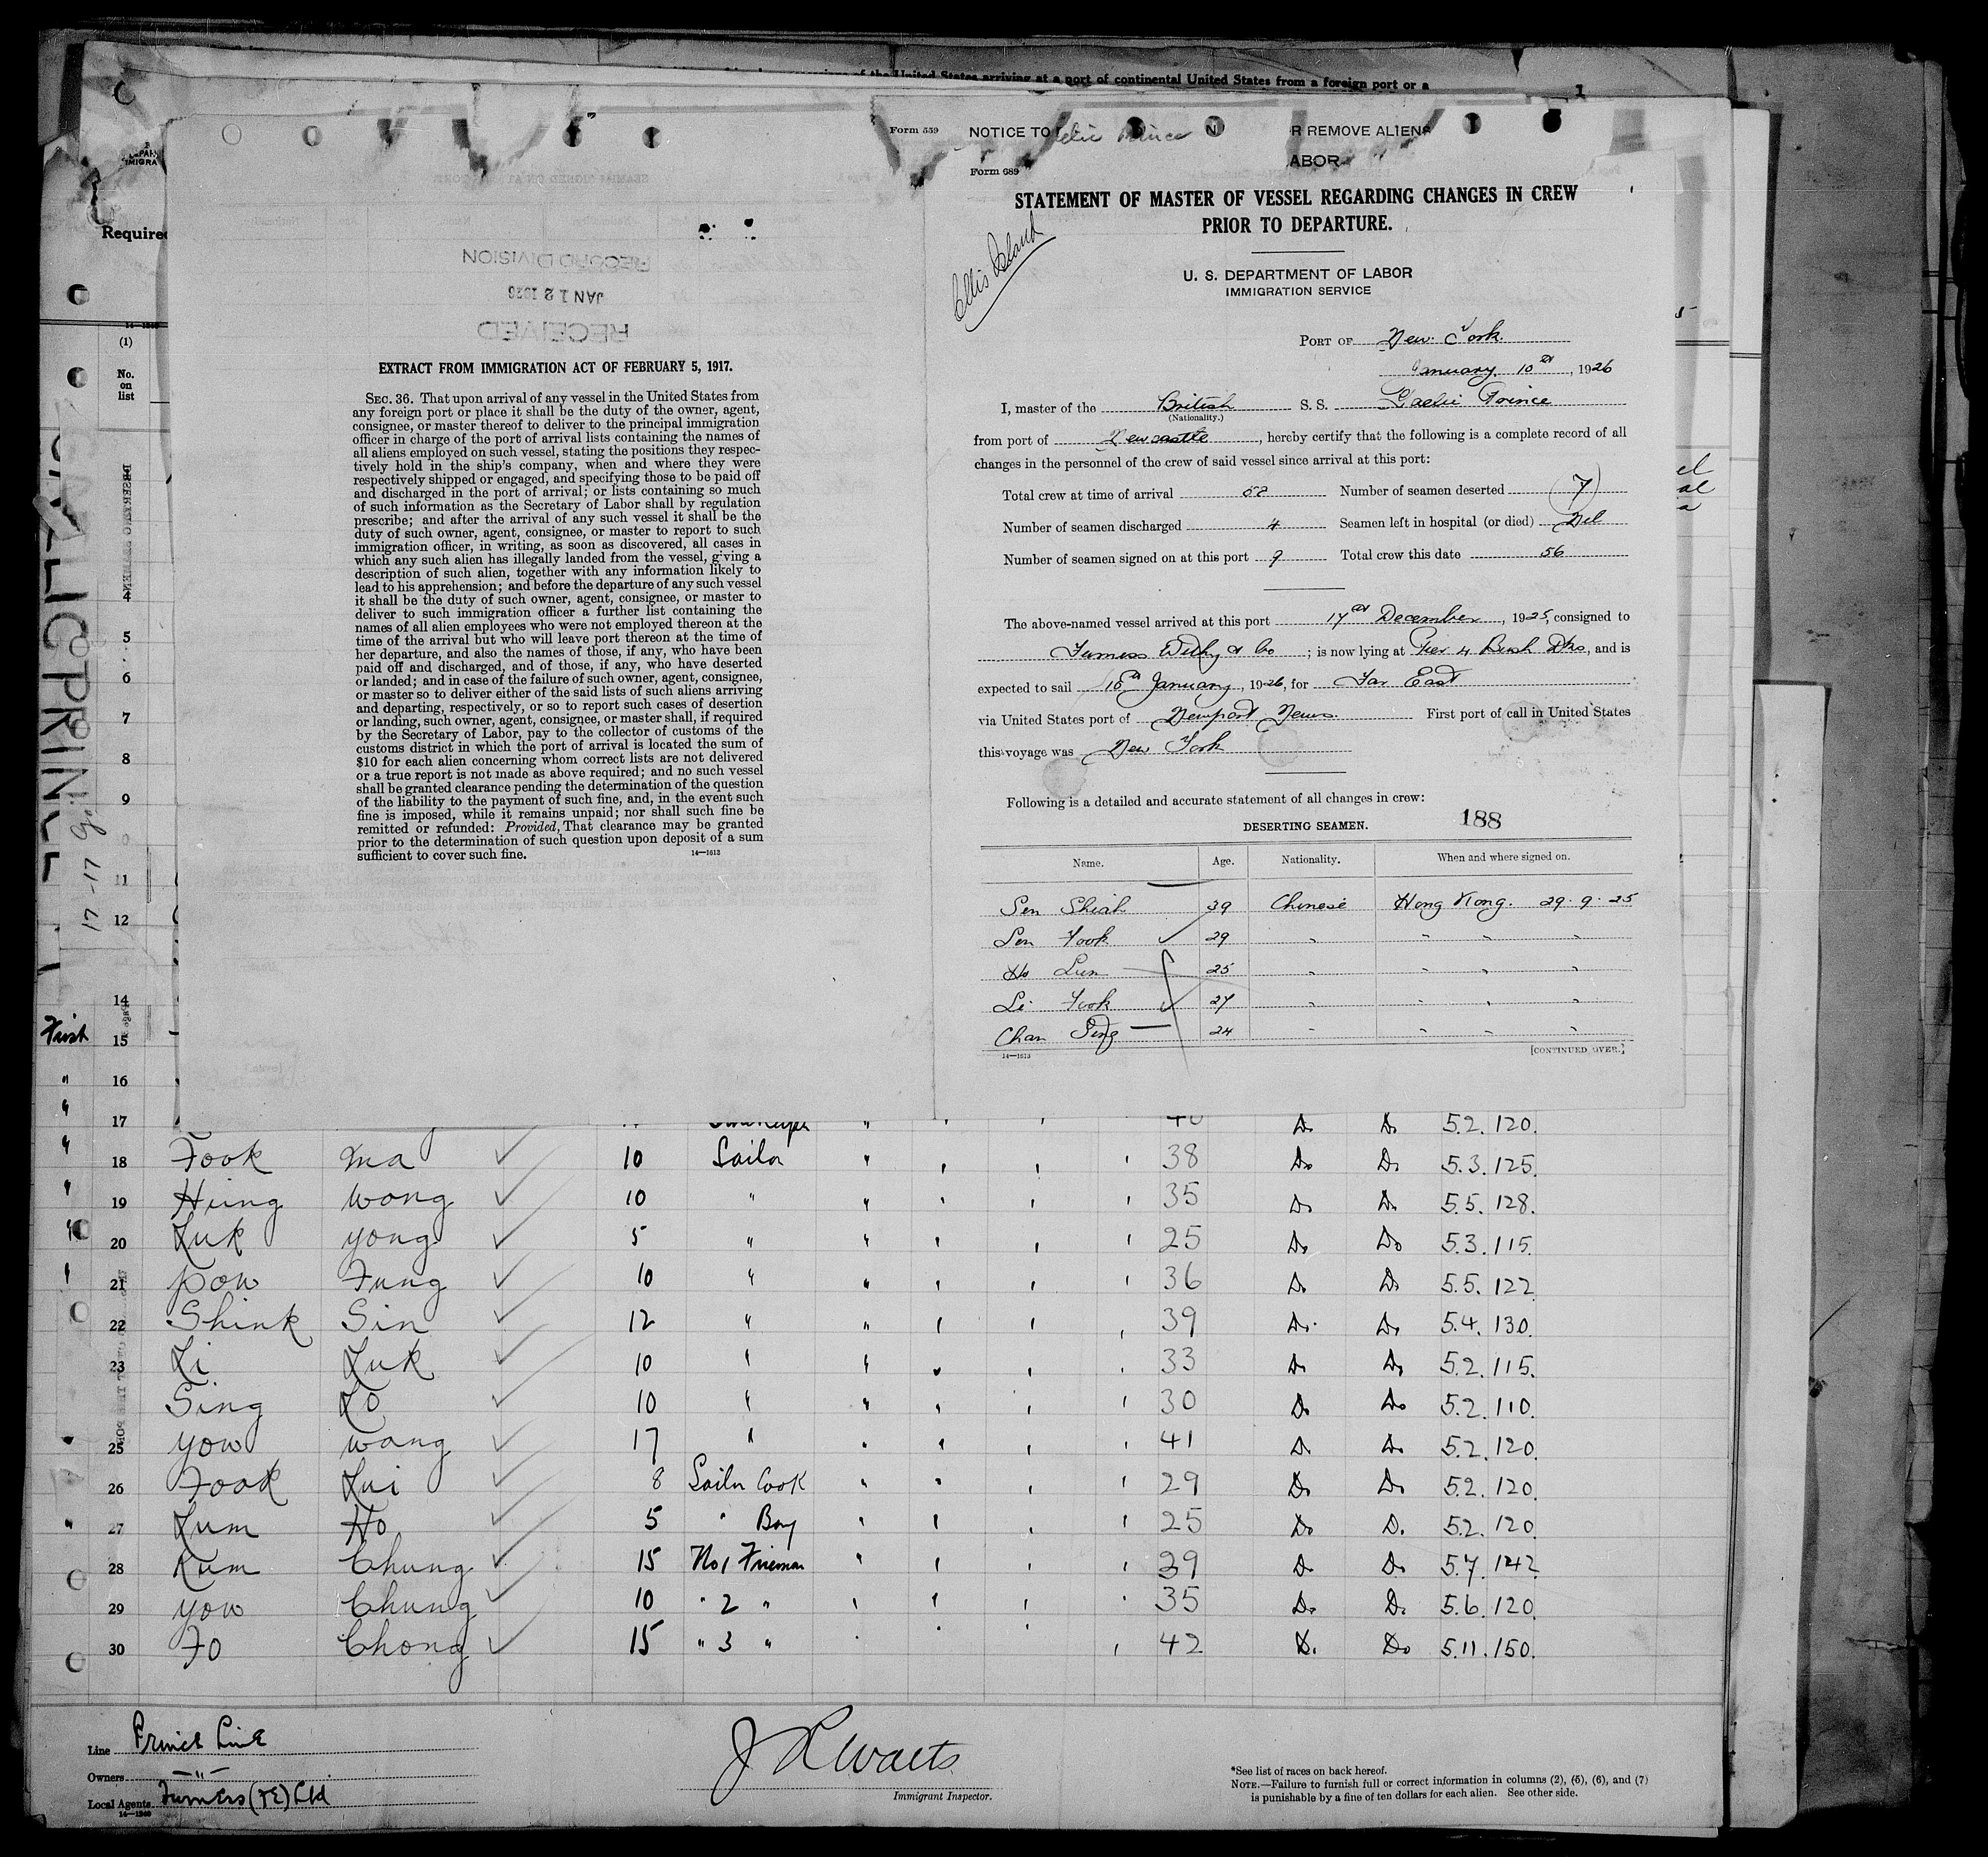 of the United States arriving at a port of continental United States from a foreign port or a
1
Required
14—1240
(1)
No.
on
list
GAELIC PRINCE
17-17
Form 559
NOTICE TO
R REMOVE ALIENS
ABOR
Form 689
STATEMENT OF MASTER OF VESSEL REGARDING CHANGES IN CREW
PRIOR TO DEPARTURE.
Ellis Island
U. S. DEPARTMENT OF LABOR
IMMIGRATION SERVICE
PORT OF New York
January 10th, 1926
I, master of the British S. S. Gaelic Prince
(Nationality.)
from port of Newcastle, hereby certify that the following is a complete record of all
changes in the personnel of the crew of said vessel since arrival at this port:
Total crew at time of arrival 58 Number of seamen deserted (7)
Number of seamen discharged 4 Seamen left in hospital (or died) Nil
Number of seamen signed on at this port 9 Total crew this date 56
The above-named vessel arrived at this port 17th December, 1925, consigned to
Furness Withy & Co; is now lying at Pier 4 Bush Dks, and is
expected to sail 10th January, 1926, for Far East
via United States port of Newport News. First port of call in United States
this voyage was New York
Following is a detailed and accurate statement of all changes in crew:
188
DESERTING SEAMEN.
Name. Age. Nationality. When and where signed on.
Sen Shiah 39 Chinese Hong Kong. 29.9.25
Len Fook 29 " " " "
Ho Lun 25 " " " "
Li Fook 27 " " " "
Chan Sing 24 " " " "
14—1613
[CONTINUED OVER.]
RECORD DIVISION
JAN 12 1926
RECEIVED
EXTRACT FROM IMMIGRATION ACT OF FEBRUARY 5, 1917.
SEC. 36. That upon arrival of any vessel in the United States from
any foreign port or place it shall be the duty of the owner, agent,
consignee, or master thereof to deliver to the principal immigration
officer in charge of the port of arrival lists containing the names of
all aliens employed on such vessel, stating the positions they respec-
tively hold in the ship's company, when and where they were
respectively shipped or engaged, and specifying those to be paid off
and discharged in the port of arrival; or lists containing so much
of such information as the Secretary of Labor shall by regulation
prescribe; and after the arrival of any such vessel it shall be the
duty of such owner, agent, consignee, or master to report to such
immigration officer, in writing, as soon as discovered, all cases in
which any such alien has illegally landed from the vessel, giving a
description of such alien, together with any information likely to
lead to his apprehension; and before the departure of any such vessel
it shall be the duty of such owner, agent, consignee, or master to
deliver to such immigration officer a further list containing the
names of all alien employees who were not employed thereon at the
time of the arrival but who will leave port thereon at the time of
her departure, and also the names of those, if any, who have been
paid off and discharged, and of those, if any, who have deserted
or landed; and in case of the failure of such owner, agent, consignee,
or master so to deliver either of the said lists of such aliens arriving
and departing, respectively, or so to report such cases of desertion
or landing, such owner, agent, consignee, or master shall, if required
by the Secretary of Labor, pay to the collector of customs of the
customs district in which the port of arrival is located the sum of
$10 for each alien concerning whom correct lists are not delivered
or a true report is not made as above required; and no such vessel
shall be granted clearance pending the determination of the question
of the liability to the payment of such fine, and, in the event such
fine is imposed, while it remains unpaid; nor shall such fine be
remitted or refunded: Provided, That clearance may be granted
prior to the determination of such question upon deposit of a sum
sufficient to cover such fine.
14—1613
4
5
6
7
8
9
11
12
14
First 15
" 16
" 17 " 40 Do Do 5.2. 120.
" 18 Fook Ma 10 Sailor " " " " 38 Do Do 5.3. 125.
" 19 Hung Wong 10 " " " " " 35 Do Do 5.5. 128.
" 20 Luk Yong 5 " " " " " 25 Do Do 5.3. 115.
" 21 Pow Fung 10 " " " " " 36 Do Do 5.5. 122
22 Shink Sin 12 " " " " " 39 Do Do 5.4. 130.
23 Li Luk 10 " " " " " 33 Do Do 5.2. 115.
Sing Lo 10 " " " " " 30 Do Do 5.2. 110.
" 25 Yow Wang 17 " " " " " 41 Do Do 5.2. 120.
26 Fook Lui 8 Sailor Cook " " " " 29 Do Do 5.2. 120.
" 27 Lum Ho 5 " Boy " " " " 25 Do Do 5.2. 120.
28 Kum Chung 15 No 1 Fireman " " " " 39 Do Do 5.7. 142.
29 Yow Chung 10 " 2 " " " " " 35 Do Do 5.6. 120.
30 Fo Chong 15 " 3 " " " " " 42 Do Do 5.11. 150.
Line Prince Line
Owners —"—
Local Agents
14—1240
Immigrant Inspector.
*See list of races on back hereof.
NOTE.—Failure to furnish full or correct information in columns (2), (5), (6), and (7)
is punishable by a fine of ten dollars for each alien. See other side.